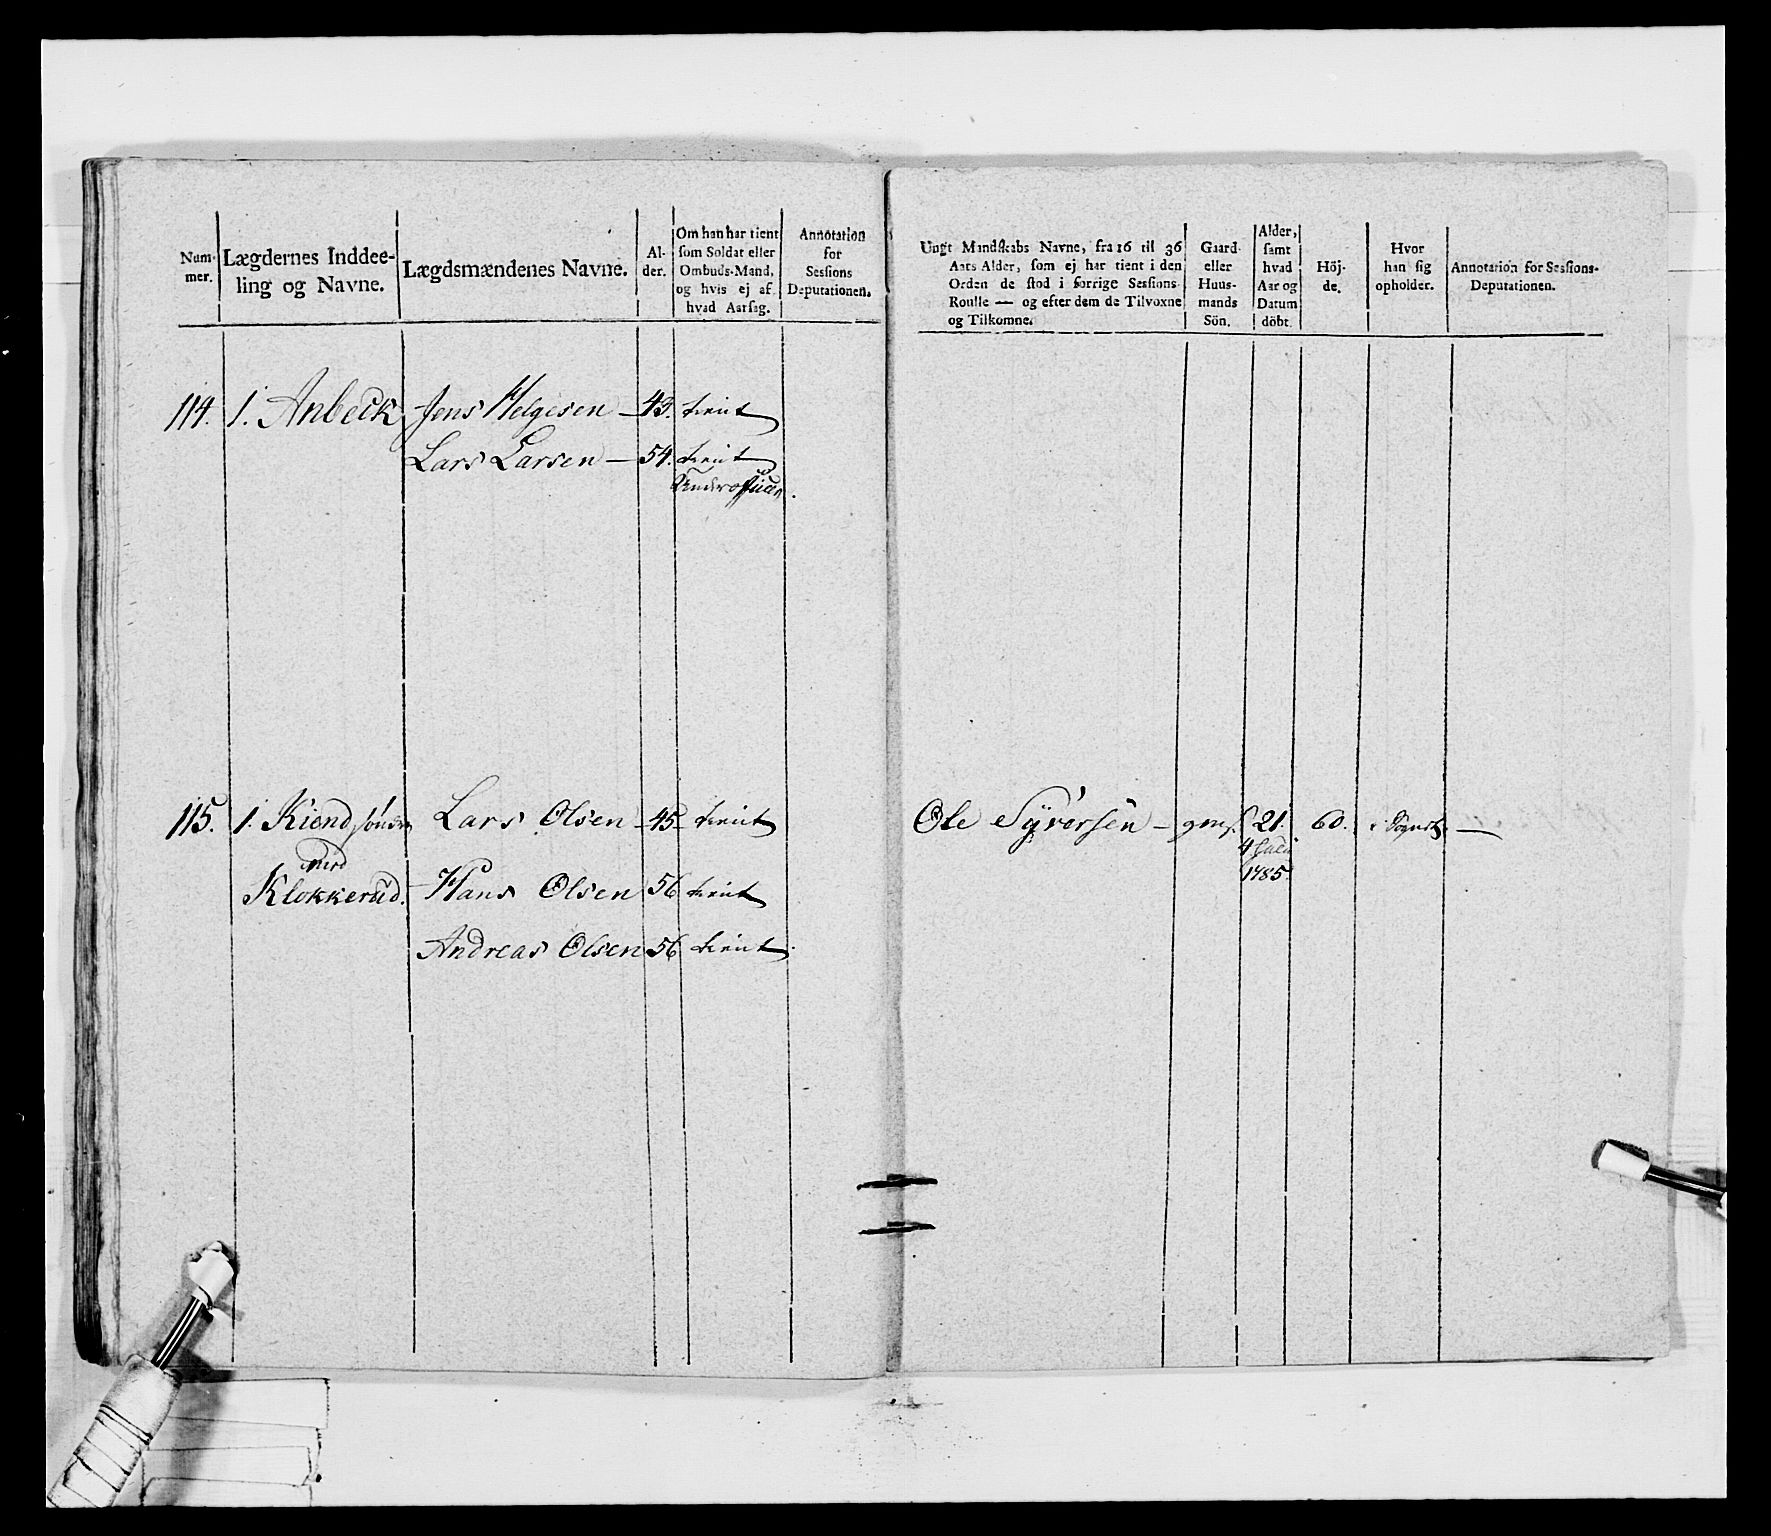 Num-
mer.
Lægdernes Inddee-
ling og Navne.
Lægdsmændenes Navne.
Al-
der.
Om han har tient
som Soldat eller
Ombuds-Mand,
og hvis ej af
hvad Aarsag.
Annotation
for
Sessions
Deputationen.
114. 1. Anbeck Jens Helgesen – 43. tient
Lars Larsen – 54. tient
Underofficeer.
115. 1. Kiend søndre Lars Olsen – 45 – tient
med
Klokkerud. Hans Olsen 56 tient
Andreas Olsen 56 tient.
Ungt Mandskabs Navne, fra 16 til 36
Aars Alder, som ej har tient i den
Orden de stod i forrige Sessions-
Roulle — og efter dem de Tilvoxne
og Tilkomne.
Gaard-
eller
Huus-
mands
Sön.
Alder,
samt
hvad
Aar og
Datum
döbt.
Höj-
de.
Hvor
han sig
opholder.
Annotation for Sessions-
Deputationen.
Ole Syversen – gms. 21. 60. i Sognet. —
4
1785.